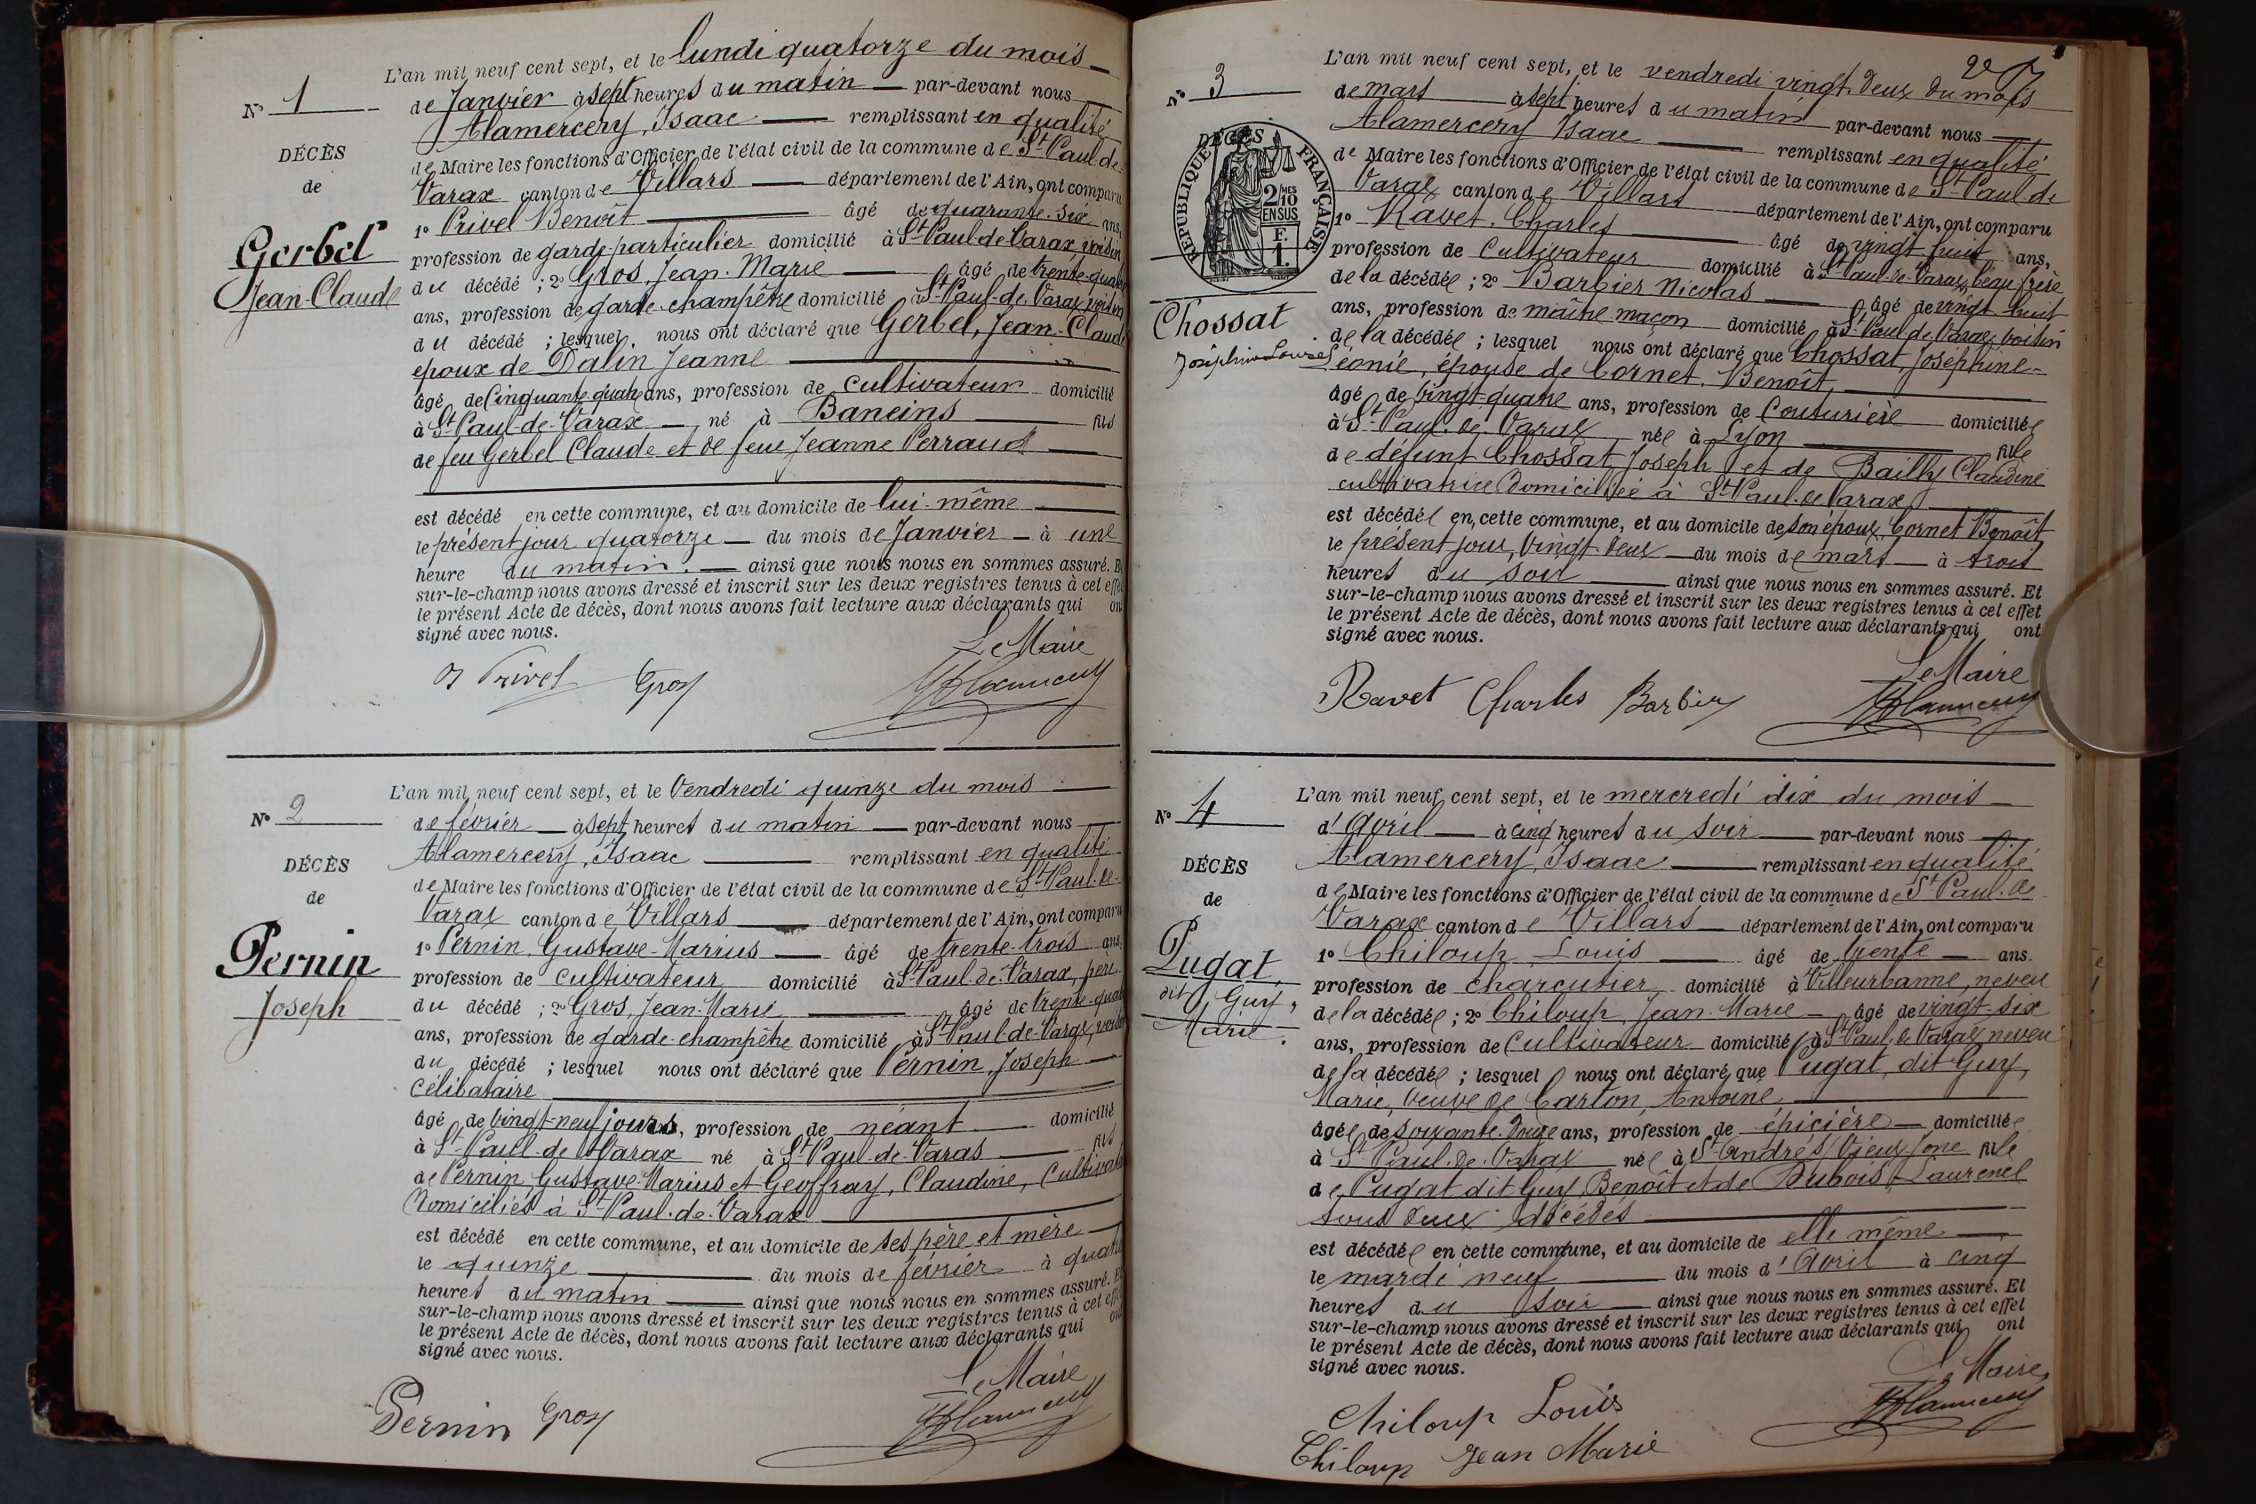 L'an mil neuf cent sept, et le lundi quatorze du mois
N° 1
de Janvier à sept heures du matin par-devant nous
Alamercery, Isaac remplissant en qualité
DÉCÈS
de Maire les fonctions d'Officier de l'état civil de la commune de St Paul-de-
de
Varax canton de Villars département de l'Ain, ont comparu
1° Privel Benoît âgé de quarante-six ans,
Gerbel
profession de garde-particulier domicilié à St Paul-de-Varax, voisin
Jean-Claude
du décédé ; 2° Gros, Jean-Marie âgé de trente-quatre
ans, profession de garde-champêtre domicilié à St Paul-de-Varax, voisin
du décédé ; lesquel. nous ont déclaré que Gerbel, Jean-Claude
époux de Dalin Jeanne
âgé de Cinquante-quatre ans, profession de cultivateur domicilié
à St Paul-de-Varax né à Baneins fils
de feu Gerbel Claude et de feue Jeanne Perraud
est décédé en cette commune, et au domicile de lui-même
le présent jour quatorze du mois de Janvier à une
heure du matin. ainsi que nous nous en sommes assuré. Et
sur-le-champ nous avons dressé et inscrit sur les deux registres tenus à cet effet
le présent Acte de décès, dont nous avons fait lecture aux déclarants qui ont
signé avec nous.
Le Maire
Privel Gros
L'an mil neuf cent sept, et le Vendredi quinze du mois
N° 2
de février à sept heures du matin par-devant nous
Alamercery, Isaac remplissant en qualité
DÉCÈS
de Maire les fonctions d'Officier de l'état civil de la commune de St Paul-de-
de
Varax canton de Villars département de l'Ain, ont comparu
1° Pernin, Gustave-Marius âgé de trente-trois ans,
Pernin
profession de cultivateur domicilié à St Paul-de-Varax, père
Joseph
du décédé ; 2° Gros, Jean-Marie âgé de trente-quatre
ans, profession de garde-champêtre domicilié à St Paul-de-Varax, voisin
du décédé ; lesquel nous ont déclaré que Pernin, Joseph
Célibataire
âgé de vingt-neuf jours, profession de néant domicilié
à St Paul-de-Varax né à St Paul-de-Varas fils
de Pernin, Gustave-Marius et Geoffray, Claudine, Cultivateurs
Domiciliés à St Paul-de-Varax
est décédé en cette commune, et au domicile de ses père et mère
le quinze du mois de février à quatre
heures du matin ainsi que nous nous en sommes assuré. Et
sur-le-champ nous avons dressé et inscrit sur les deux registres tenus à cet effet
le présent Acte de décès, dont nous avons fait lecture aux déclarants qui ont
signé avec nous.
Le Maire
Pernin Gros
L'an mil neuf cent sept, et le vendredi vingt-deux du mois
N° 3
de mars à sept heures du matin par-devant nous
Alamercery Isaac remplissant en qualité
DÉCÈS
RÉPUBLIQUE FRANÇAISE
2/10 MES
EN SUS
F.
1.
de Maire les fonctions d'Officier de l'état civil de la commune de St Paul-de
Varax canton de Villars département de l'Ain, ont comparu
1° Ravet, Charles âgé de vingt-huit ans,
profession de Cultivateur domicilié à St Paul-de-Varax, beau-frère
de la décédée ; 2° Barbier Nicolas âgé de vingt-huit
Chossat
ans, profession de maître maçon domicilié à St Paul-de-Varax, voisin
Joséphine Louise
de la décédée ; lesquel nous ont déclaré que Chossat, Joséphine-
Léonie, épouse de Cornet, Benoît
âgé de vingt-quatre ans, profession de Couturière domiciliée
à St Paul-de-Varax née à Lyon fille
de défunt Chossat, Joseph et de Bailly Claudine
cultivatrice domiciliée à St Paul-de-Varax
est décédée en cette commune, et au domicile de son époux Cornet Benoît
le présent jour, Vingt-deux du mois de mars à trois
heures du soir ainsi que nous nous en sommes assuré. Et
sur-le-champ nous avons dressé et inscrit sur les deux registres tenus à cet effet
le présent Acte de décès, dont nous avons fait lecture aux déclarants qui ont
signé avec nous.
Le Maire
Ravet Charles Barbier
L'an mil neuf cent sept, et le mercredi dix du mois
N° 4
d'avril à cinq heures du soir par-devant nous
Alamercery, Isaac remplissant en qualité
DÉCÈS
de Maire les fonctions d'Officier de l'état civil de la commune de St Paul-de
de
Varax canton de Villars département de l'Ain, ont comparu
1° Chiloup, Louis âgé de trente ans.
Pugat
profession de charcutier domicilié à Villeurbanne, neveu
dit Guy,
de la décédée ; 2° Chiloup, Jean-Marie âgé de vingt-six
Marie.
ans, profession de Cultivateur domicilié à St Paul-de-Varax neveu
de la décédée ; lesquel nous ont déclaré que Pugat, dit Guy,
Marie, Veuve de Carton, Antoine
âgée de soixante-douze ans, profession de épicière domiciliée
à St Paul-de-Varax née à St Andrés/Vieux Jonc fille
de Pugat dit Guy, Benoît et de Dubois, Laurence
tous deux décédés
est décédée en cette commune, et au domicile de elle-même
le mardi neuf du mois d'avril à cinq
heures du soir ainsi que nous nous en sommes assuré. Et
sur-le-champ nous avons dressé et inscrit sur les deux registres tenus à cet effet
le présent Acte de décès, dont nous avons fait lecture aux déclarants qui ont
signé avec nous.
Le Maire,
Chiloup Louis
Chiloup Jean Marie